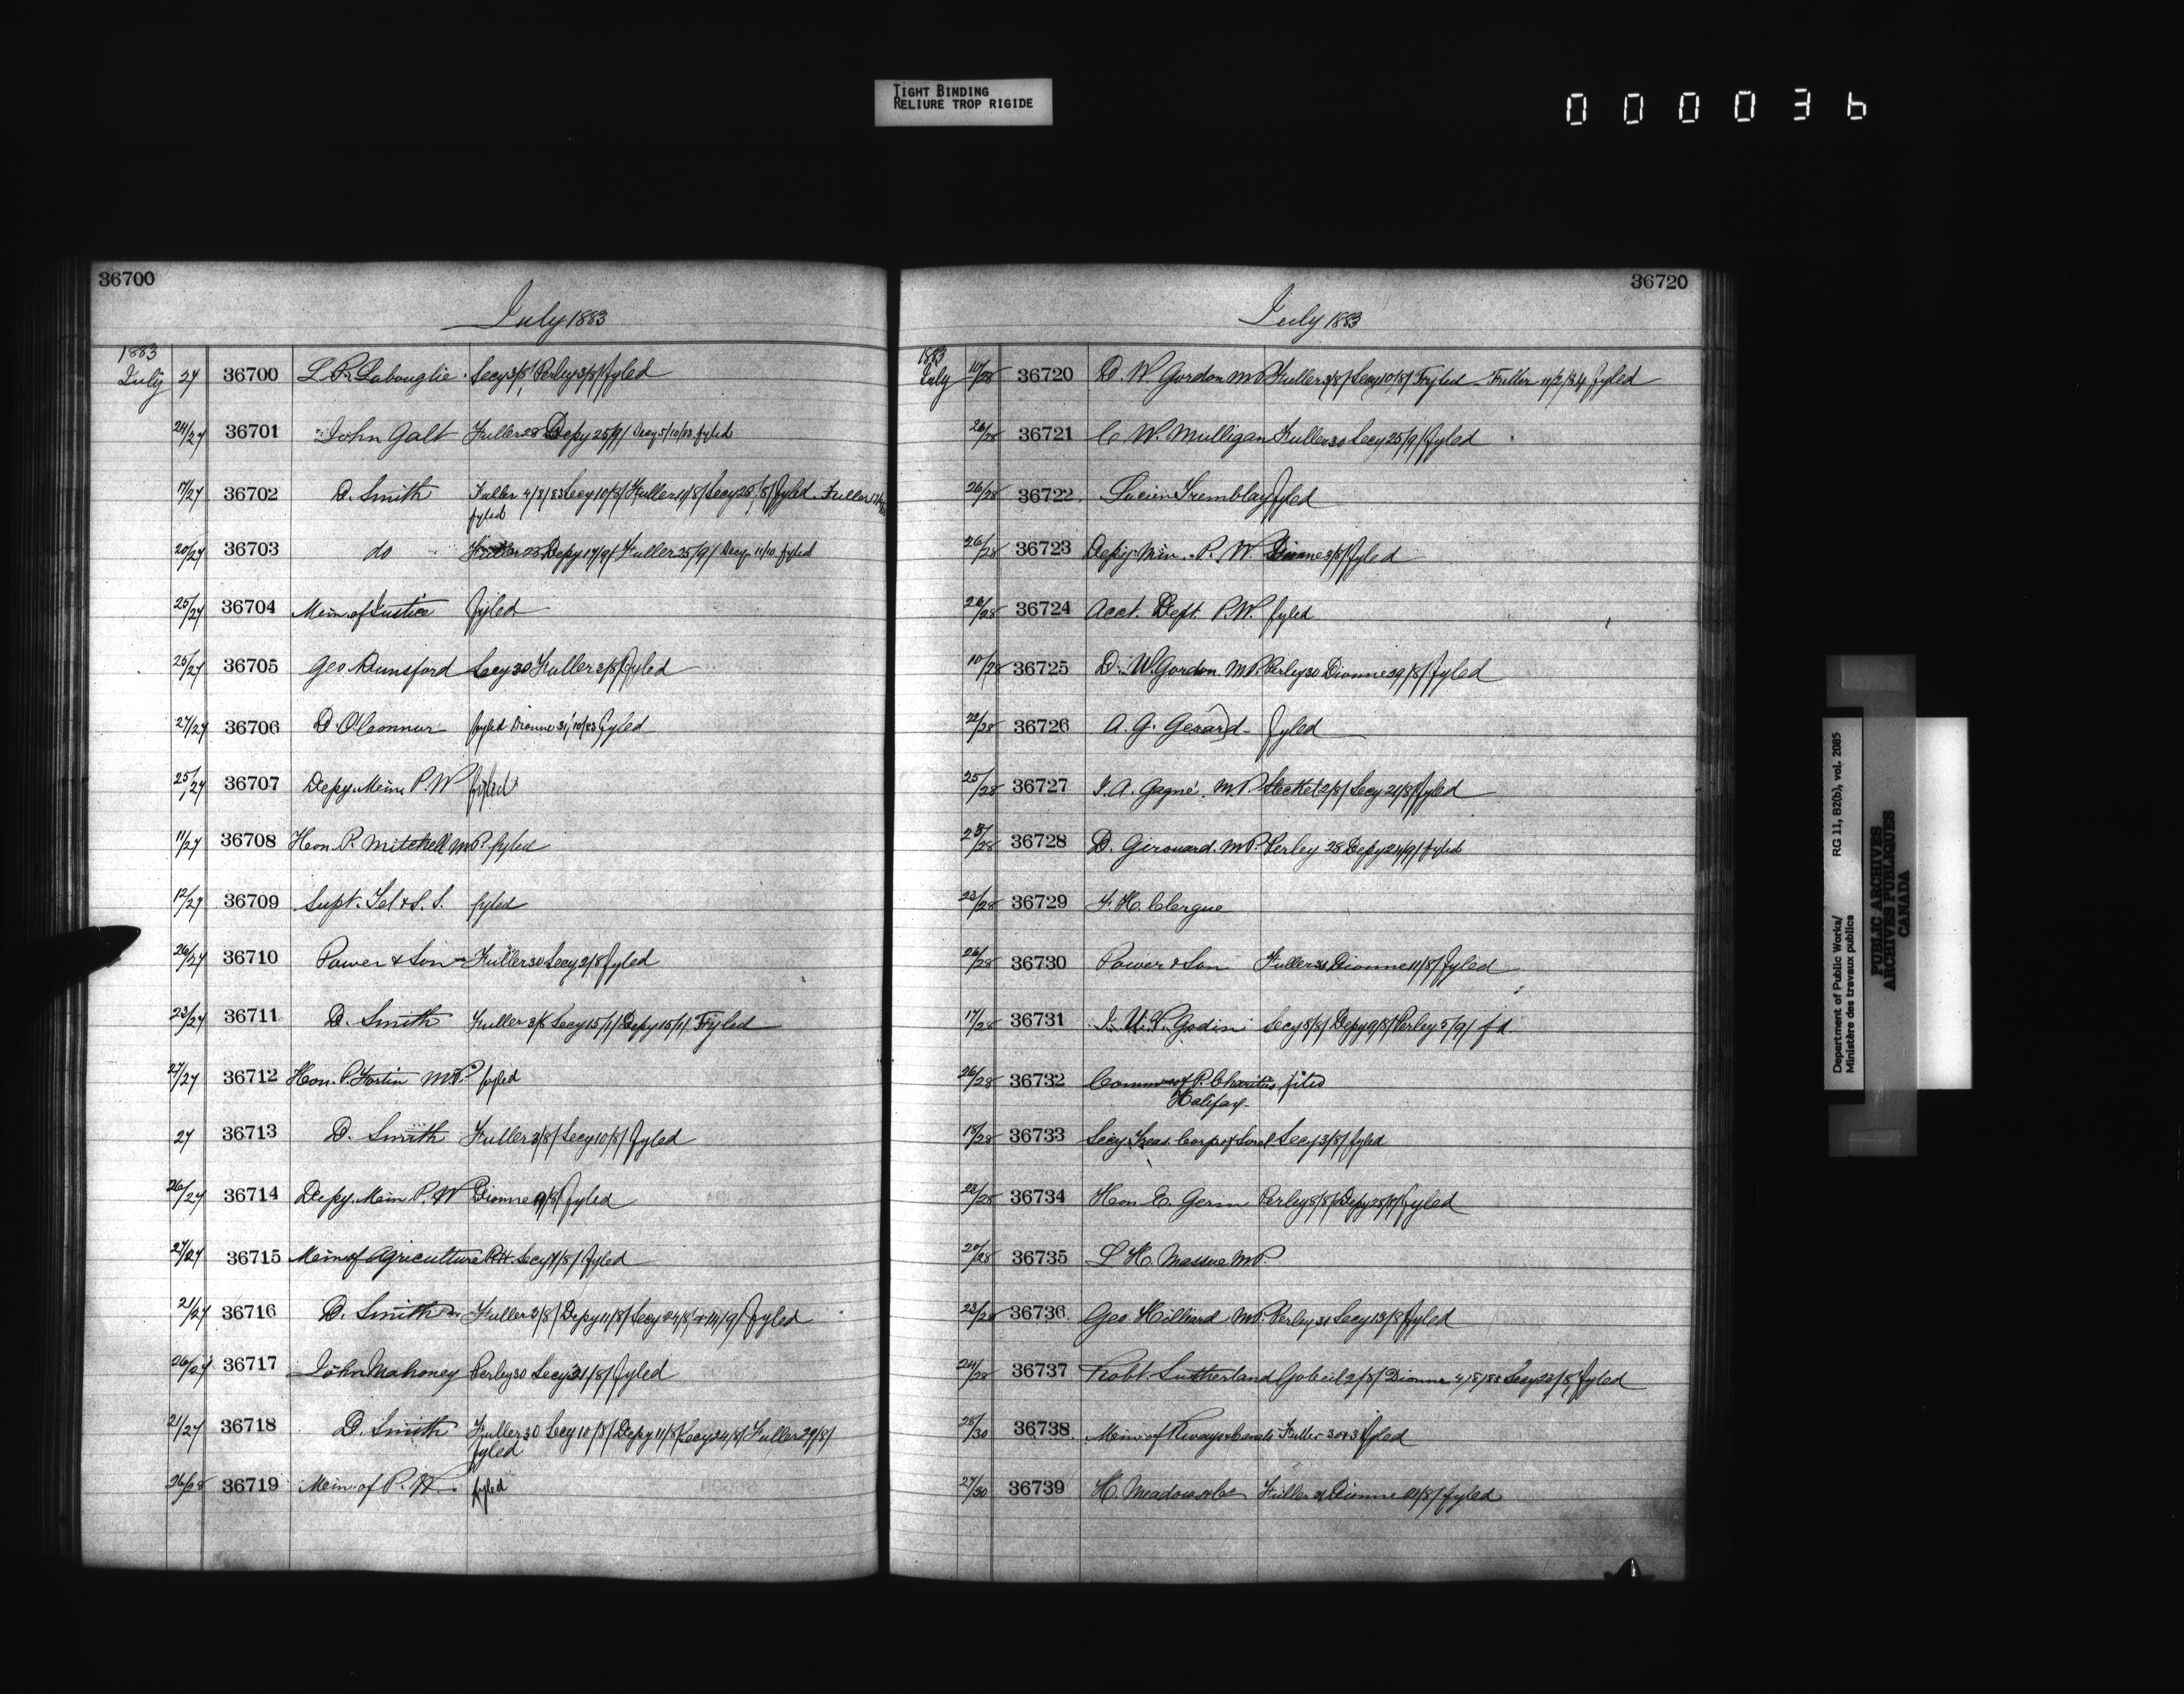 TIGHT BINDING
RELIURE TROP RIGIDE
000036
36700
July 1883
1883
July 27 36700 L. R. Labouglie. Secy 3/8/ Perley 3/8/ fyled
24/27 36701 John Galt Fuller 28 Depy 25/9/ Secy 5/10/83 fyled
7/27 36702 D. Smith Fuller 4/8/83 Secy 10/8/ Fuller 11/8/ Secy 28/8/ fyled. Fuller
fyled
20/27 36703 do Fuller 28 Depy 17/9/ Fuller 25/9/ Secy 11/10 fyled
25/27 36704 Min. of Justice fyled
25/27 36705 Geo Dunsford Secy 30 Fuller 3/8/ fyled
27/27 36706 D. O'Connor fyled Dionne 31/10/83 fyled
25/27 36707 Depy. Min. P. W fyled
11/27 36708 Hon. P. Mitchell M.P. fyled
12/27 36709 Supt. Tel & S. S. fyled
26/27 36710 Power & Son Fuller 30 Secy 2/8 fyled
23/27 36711 D. Smith Fuller 3/8 Secy 15/1/ Depy 15/1/ Fyled
27/27 36712 Hon. P. Fortin M.P. fyled
27 36713 D. Smith Fuller 3/8/ Secy 10/8/ fyled
26/27 36714 Depy. Min P. W Dionne 9/8/ fyled
27/27 36715 Min of Agriculture Secy 7/8/ fyled
21/27 36716 D. Smith Fuller 3/8/ Depy 11/8/ Secy 24/8/ & 14/9/ fyled
26/27 36717 John Mahoney Perley 30 Secy 31/8/ fyled
21/27 36718 D. Smith Fuller 30 Secy 10/8/ Depy 11/8/ Secy 24/8/ Fuller 29/8/
fyled
26/28 36719 Min. of P. W. fyled
36720
July 1883
1883
July 10/28 36720 D. W. Gordon M.P. Fuller 3/8/ Secy 10/8/ Fyled Fuller 11/2/84 fyled
26/28 36721 C. W. Mulligan Fuller 30 Secy 25/9/ fyled
26/28 36722 Lucien Tremblay fyled
26/28 36723 Depy. Min. P. W. Dionne 3/8/ fyled
26/28 36724 Acct. Dept. P.W. fyled
10/28 36725 D. W. Gordon M.P. Perley 30 Dionne 29/8/ fyled
22/28 36726 A. G. Gerard fyled
25/28 36727 J. A. Gagné. M.P. Steckel 2/8/ Secy 21/8/ fyled
28/28 36728 D. Girouard. M.P. Perley 28 Depy 24/9/ fyled
23/28 36729 F. H. Clergue
26/28 36730 Power & Son Fuller 30 Dionne 11/8/ fyled
17/28 36731 J. U. V. Godin Secy 8/8/ Depy 9/8/ Perley 5/9/ fd.
26/28 36732 Commrs of P. Charities filed
Halifax
18/28 36733 Secy Treas. Corp of Sorel Secy 3/8/ fyled
23/28 36734 Hon E. Gerin Perley 8/8/ Depy 28/8/ fyled
20/28 36735 L H. Massue M.P.
23/28 36736 Geo Hilliard M.P. Perley 31 Secy 13/8 fyled
24/28 36737 Robt. Sutherland Gobeil 2/8/ Dionne 4/8/83 Secy 23/8/ fyled
28/30 36738 Min of Rways & Canals Fuller 30 & 31 fyled
27/30 36739 H. Meadows & Co Fuller 31 Dionne 21/8/ fyled
Department of Public Works/
Ministère des travaux publics
RG 11, B2(b), vol. 2085
PUBLIC ARCHIVES
ARCHIVES PUBLIQUES
CANADA